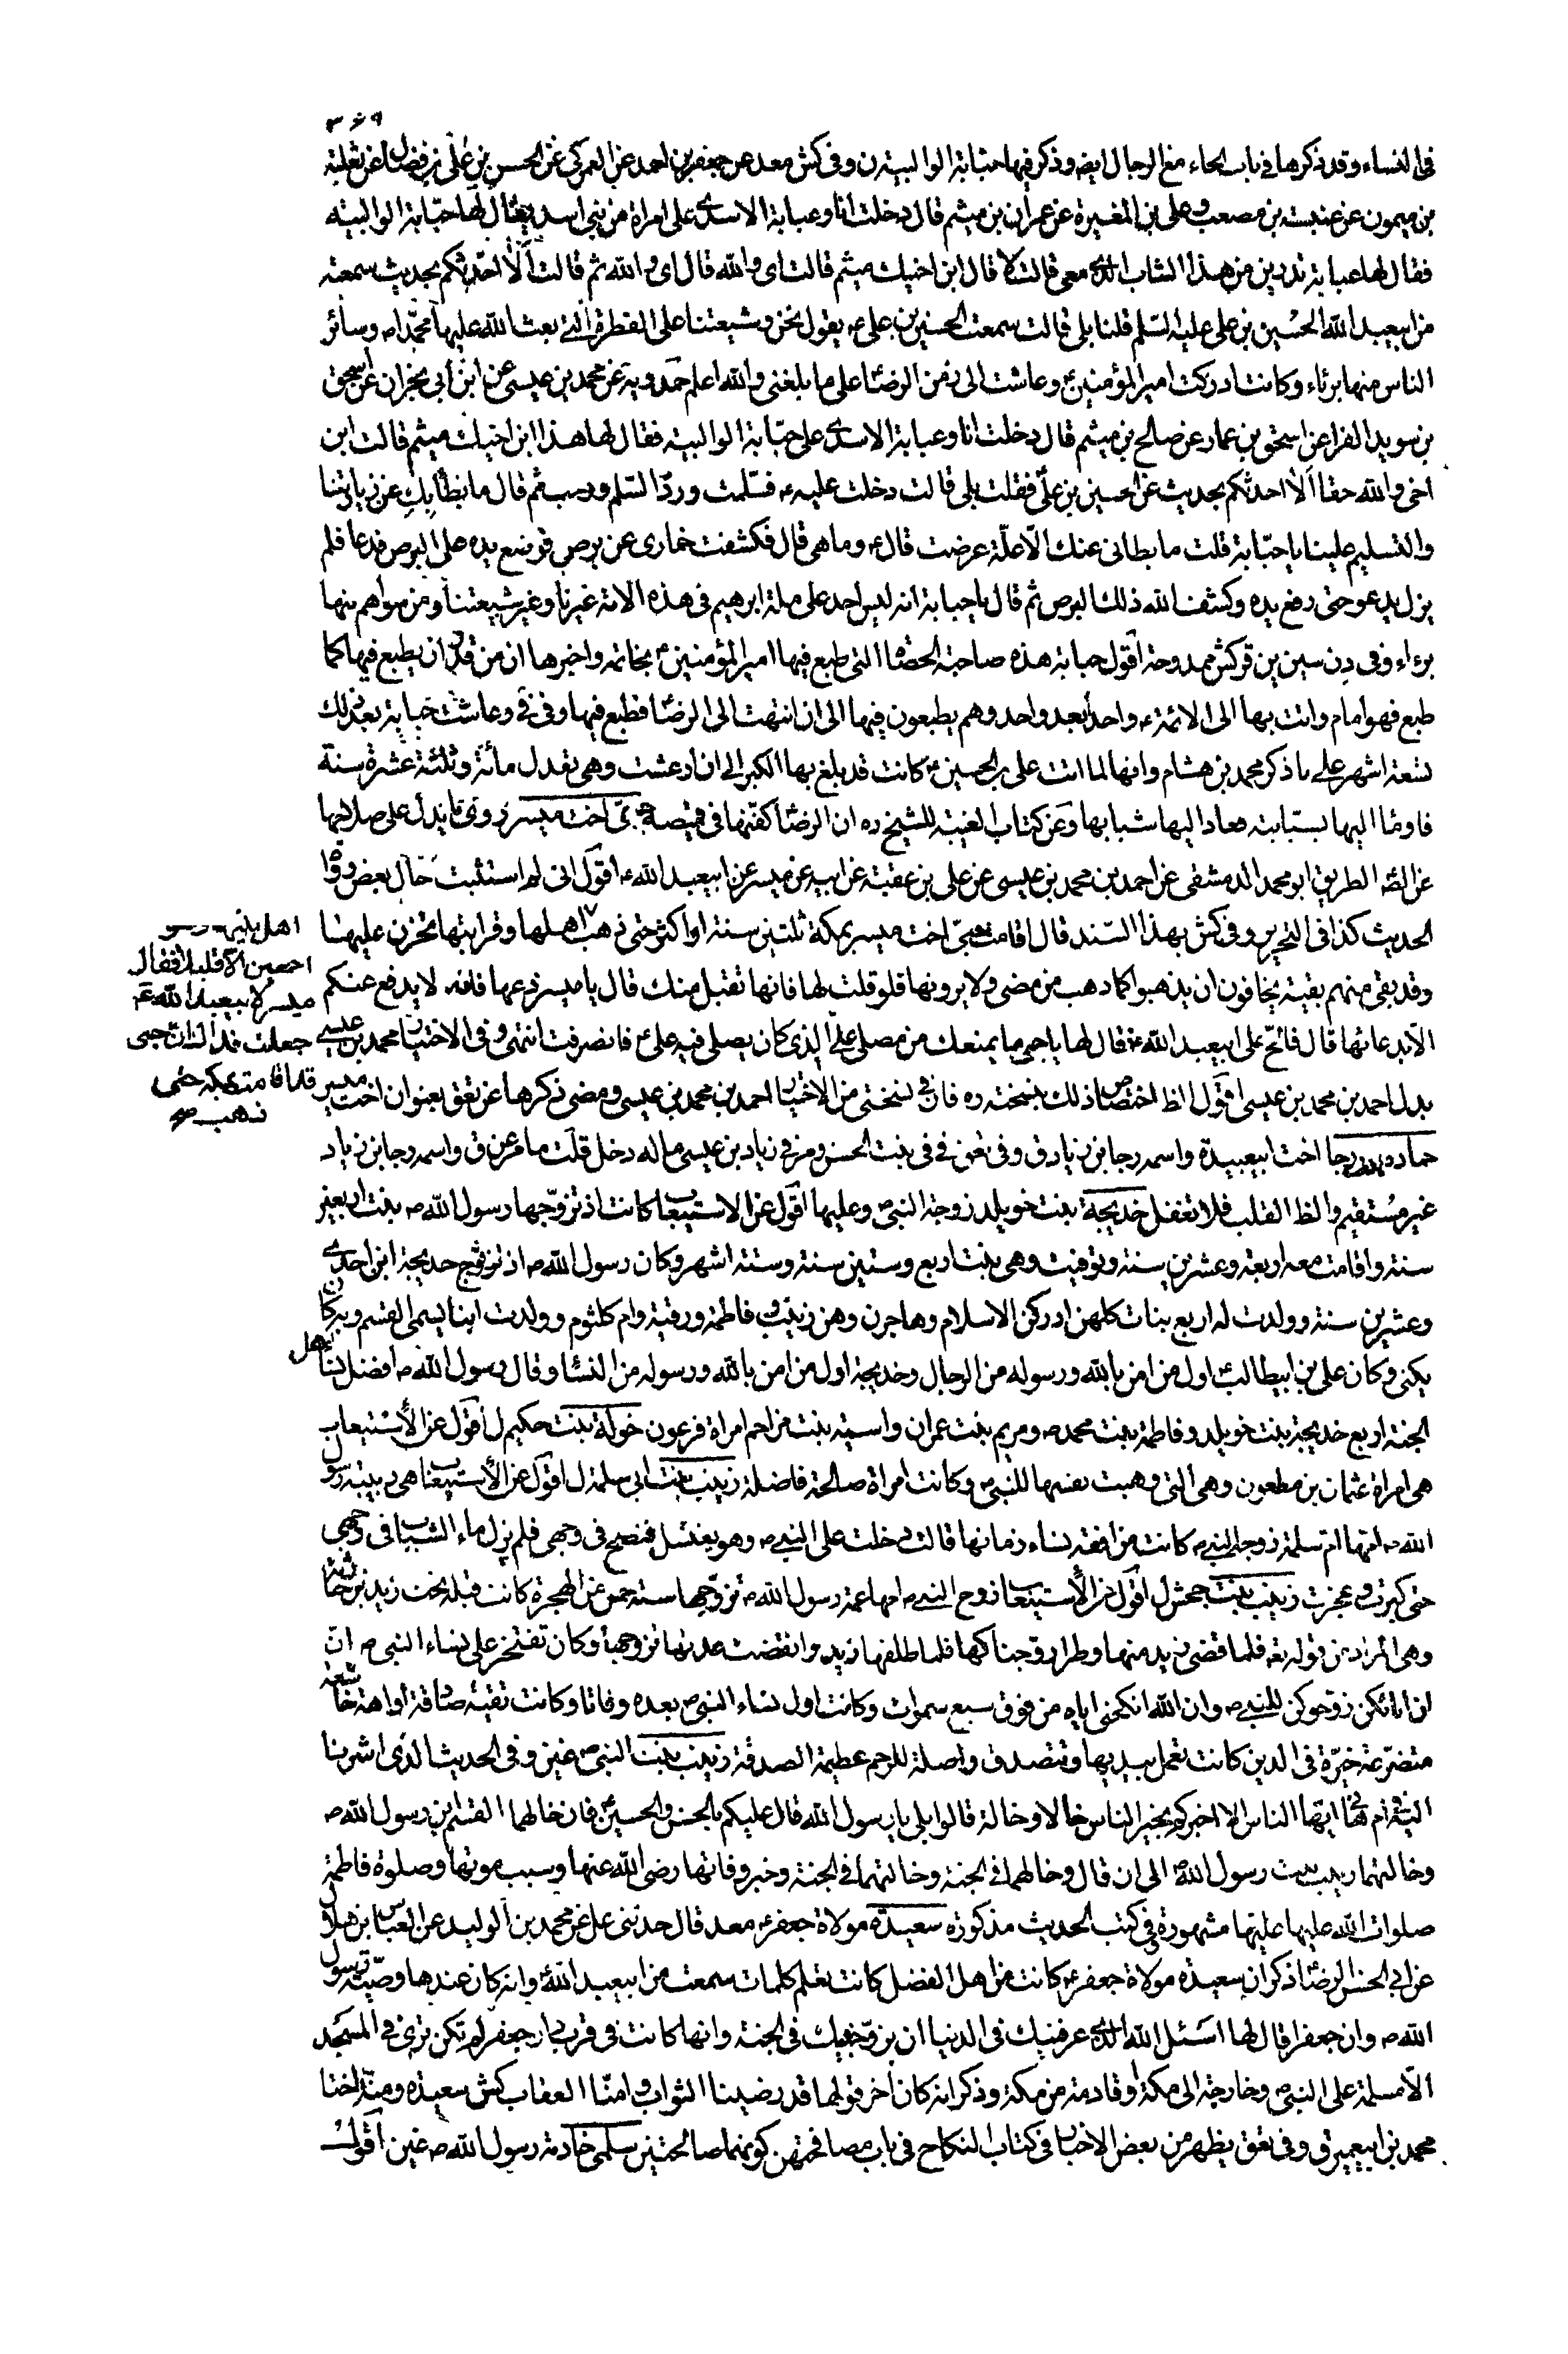 ٣٦٩
في النساء وقد ذكرها في باب الحاء مع الرجال ايضه وذكر فيها حبابة الوالبية ن وفي كش معد عن جعفر بن احمد عن العمركي عن الحسن بن علي بن فضال عن ثعلبة
بن ميمون عن عنبسة بن مصعب وعلي بن المغيرة عن عمران بن ميثم قال دخلت انا وعباية الاسدي على امراة من بني اسد يقال لها حبّابة الوالبيه
فقال لها عباية تدرين من هذا الشاب الذي معي قالت لا قال ابن اخيك ميثم قالت اى والله قال اى والله ثم قالت ألا احدّثكم بحديث سمعته
من ابيعبد الله الحسين بن علي عليه السّلم قلنا بلى قالت سمعت الحسين بن علي ع يقول نحن وشيعتنا على الفطرة التي بعث الله عليها محمّدا ص وسائر
الناس منها برئاء وكانت ادركت امير المؤمنين ع وعاشت الى زمن الرضا ع على ما بلغنى والله اعلم حمدويه عن محمد بن عيسى عن ابن أبي نجران عن اسحق
بن سويد الفرا عن اسحق بن عمار عن صالح بن ميثم قال دخلت انا وعباية الاسدي على حبّابة الوالبيه فقال لها هذا ابن اخيك ميثم قالت ابن
اخي والله حقا ألا احدثكم بحديث عن الحسين بن علي فقلت بلى قالت دخلت عليه ع فسّلمت وردّ السّلم ورحب ثم قال ما بطأ بك عن زيارتنا
والتسليم علينا يا حبّابة قلت ما بطانى عنك الّا علّة عرضت قال ع وما هى قال فكشفت خمارى عن برص فوضع يده على البرص فدعا فلم
يزل يدعو حتى رفع يده وكشف الله ذلك البرص ثم قال يا حبابة انه ليس احد على ملة ابرهيم في هذه الامة غيرنا وغير شيعتنا ومن سواهم منها
برءاء وفي د ن سين ين قر كش ممدوحة اقول حبابة هذه صاحبة الحصاة التي طبع فيها امير المؤمنين ع بخاتمه واخبرها ان من قدر ان يطبع فيها كما
طبع فهو امام واتت بها الى الائمة ع واحدا بعد واحد وهم يطبعون فيها الى ان انتهت الى الرضا ع فطبع فيها وفي في وعاشت حبابة بعد ذلك
تسعة اشهر على ما ذكر محمد بن هشام وانها لما اتت علي بن الحسين ع كانت قد بلغ بها الكبر الى ان ارعشت وهى تعدل مأئة وثلثة عشرة سنة
فاومأ اليها بسبّابته فعاد اليها شبابها وعن كتاب الغيبة للشيخ ره ان الرضا ع كفنها في قميصه حبى اخت ميسر روى ما يدل على صلاحها
عن الطريق ابو محمد الدمشقى عن احمد بن محمد بن عيسى عن علي بن عقبة عن ابيه عن ميسر عن ابيعبد الله ع اقول انى لم استثبت حال بعض رواة
الحديث كذا في التحرير وفي كش بهذا السّند قال اقامت حبىّ اخت ميسر بمكة ثلثين سنة او اكثر حتى ذهب اهلها وقرابتها تحزن عليها
وقد بقى منهم بقية يخافون ان يذهبوا كما ذهب من مضى ولا يرونها فلو قلت لها فانها تقبل منك قال يا ميسر دعها فانه لا يدفع عنكم
الا بدعائها قال فالحّ على ابيعبد الله ع فقال لها يا حبى ما يمنعك من مصلى علىّ الذى كان يصلى فيه علي ع فانصرفت انتهى وفي الاختيار محمد بن عيسى
بدل احمد بن محمد بن عيسى اقول اظ اختصاص ذلك بنسخته ره فان في نسختى من الاختيار احمد بن محمد بن عيسى ومضى ذكرها عن تعق بعنوان اخت ميسر
اهل بيتها
اجمعين الا قليلا فقال
ميسر لابيعبد الله ع
جعلت فداك ان حبى
قد اقامت بمكة حتى
ذهب صح
حماده بنت رجا اخت ابيعبيدة واسمه رجا بن زياد ق وفي تعق في في بنت الحسن ومر في زياد بن عيسى ما له دخل قلت ما مر عن ق واسمه رجا بن زياد
غير مُستقيم والظ القلب فلا تغفل خديجة بنت خويلد زوجة النبى ص وعليها اقول عن الاستيعاب كانت اذ تزوّجها رسول الله ص بنت اربعين
سنة واقامت معه اربعة وعشرين سنة وتوفيت وهي بنت اربع وستين سنة وستة اشهر وكان رسول الله ص اذ تزوج خديجة ابن احدى
وعشرين سنة وولدت له اربع بنات كلهن ادركن الاسلام وهاجرن وهن زينب وفاطمة ورقية وام كلثوم وولدت ابنا يسمى القسم وبه كان
يكنى وكان علي بن ابيطالب ع اول من امن بالله ورسوله من الرجال وخديجة اول من امن بالله ورسوله من النساء وقال رسول الله ص افضل نساء اهل
الجنة اربع خديجة بنت خويلد وفاطمة بنت محمد ص ومريم بنت عمران واسية بنت مزاحم امراة فرعون خولة بنت حكيم ل اقول عن الأستيعاب
هى امراة عثمان بن مظعون وهى التى وهبت نفسها للنبى ص وكانت امراة صالحة فاضلة زينب بنت ابي سلمة ل اقول عن الأستيعاب هى ربيبة رسول
الله ص امها ام سلمة زوجة النبي ص كانت من افقه نساء زمانها قالت دخلت على النبي ص وهو يغتسل فنضح في وجهى فلم يزل ماء الشباب في وجهى
حتى كبرت وعجزت زينب بنت جحش ل اقول عن الأستيعاب زوج النبي ص امها عمة رسول الله ص تزوجها سنة خمس من الهجرة كانت قبله تحت زيد بن حارثة
وهى المراد من قوله تعه فلما قضى زيد منها وطرا زوجناكها فلما طلقها زيد وانقضت عدتها تزوجها وكان تفتخر على نساء النبى ص ان
ان ابائكن زوجوكن للنبى ص وان الله انكحنى اياه من فوق سبع سموات وكانت اول نساء النبى ص بعده وفاتا وكانت تقية صادقة اواهة خاشعة
متضرعة خيّرة في الدين كانت تعمل بيديها وتتصدق واصلة للرحم عظيمة الصدقة زينب بنت النبى ص غين وفي الحديث الذى اشرنا
اليه في ام هانى ايها الناس الا اخبركم بخير الناس خالا وخالة قالوا بلى يا رسول الله قال عليكم بالحسن والحسين فان خالهما القسم بن رسول الله ص
وخالتهما زينب بنت رسول الله الى ان قال وخالهما في الجنة وخالتهما في الجنة وخبر وفاتها رضي الله عنها وسبب موتها وصلوة فاطمة
صلوات الله عليها عليها مشهورة في كتب الحديث مذكورة سعيدة مولاة جعفر ع معد قال حدثنى علي عن محمد بن الوليد عن العباس بن هلال
عن ابي الحسن الرضا ع ذكر ان سعيدة مولاة جعفر ع كانت من اهل الفضل كانت تعلم كلمات سمعت من ابيعبد الله ع وانه كان عندها وصّية رسول
الله ص وان جعفرا قال لها اسئل الله الذى عرفنيك في الدنيا ان يزوّجنيك في الجنة وانها كانت في قرب دار جعفر لم تكن ترى في المسجد
الا مسلمة على النبى ص وخارجة الى مكة او قادمة من مكة وذكر انه كان اخر قولها قد رضينا الثواب وامنّا العقاب كش سعيدة ومنة اختا
محمد بن ابيعمير ق وفي تعق يظهر من بعض الاخبار في كتاب النكاح في باب مصافحتهن كونهما صالحتين سلمى خادمة رسول الله ص غين اقول